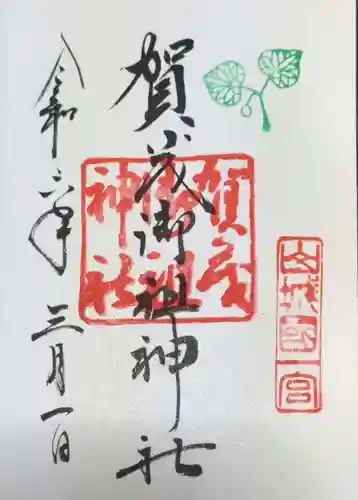 山城國一宮
賀茂御祖神社
賀茂
御祖
神社
令和六年三月一日